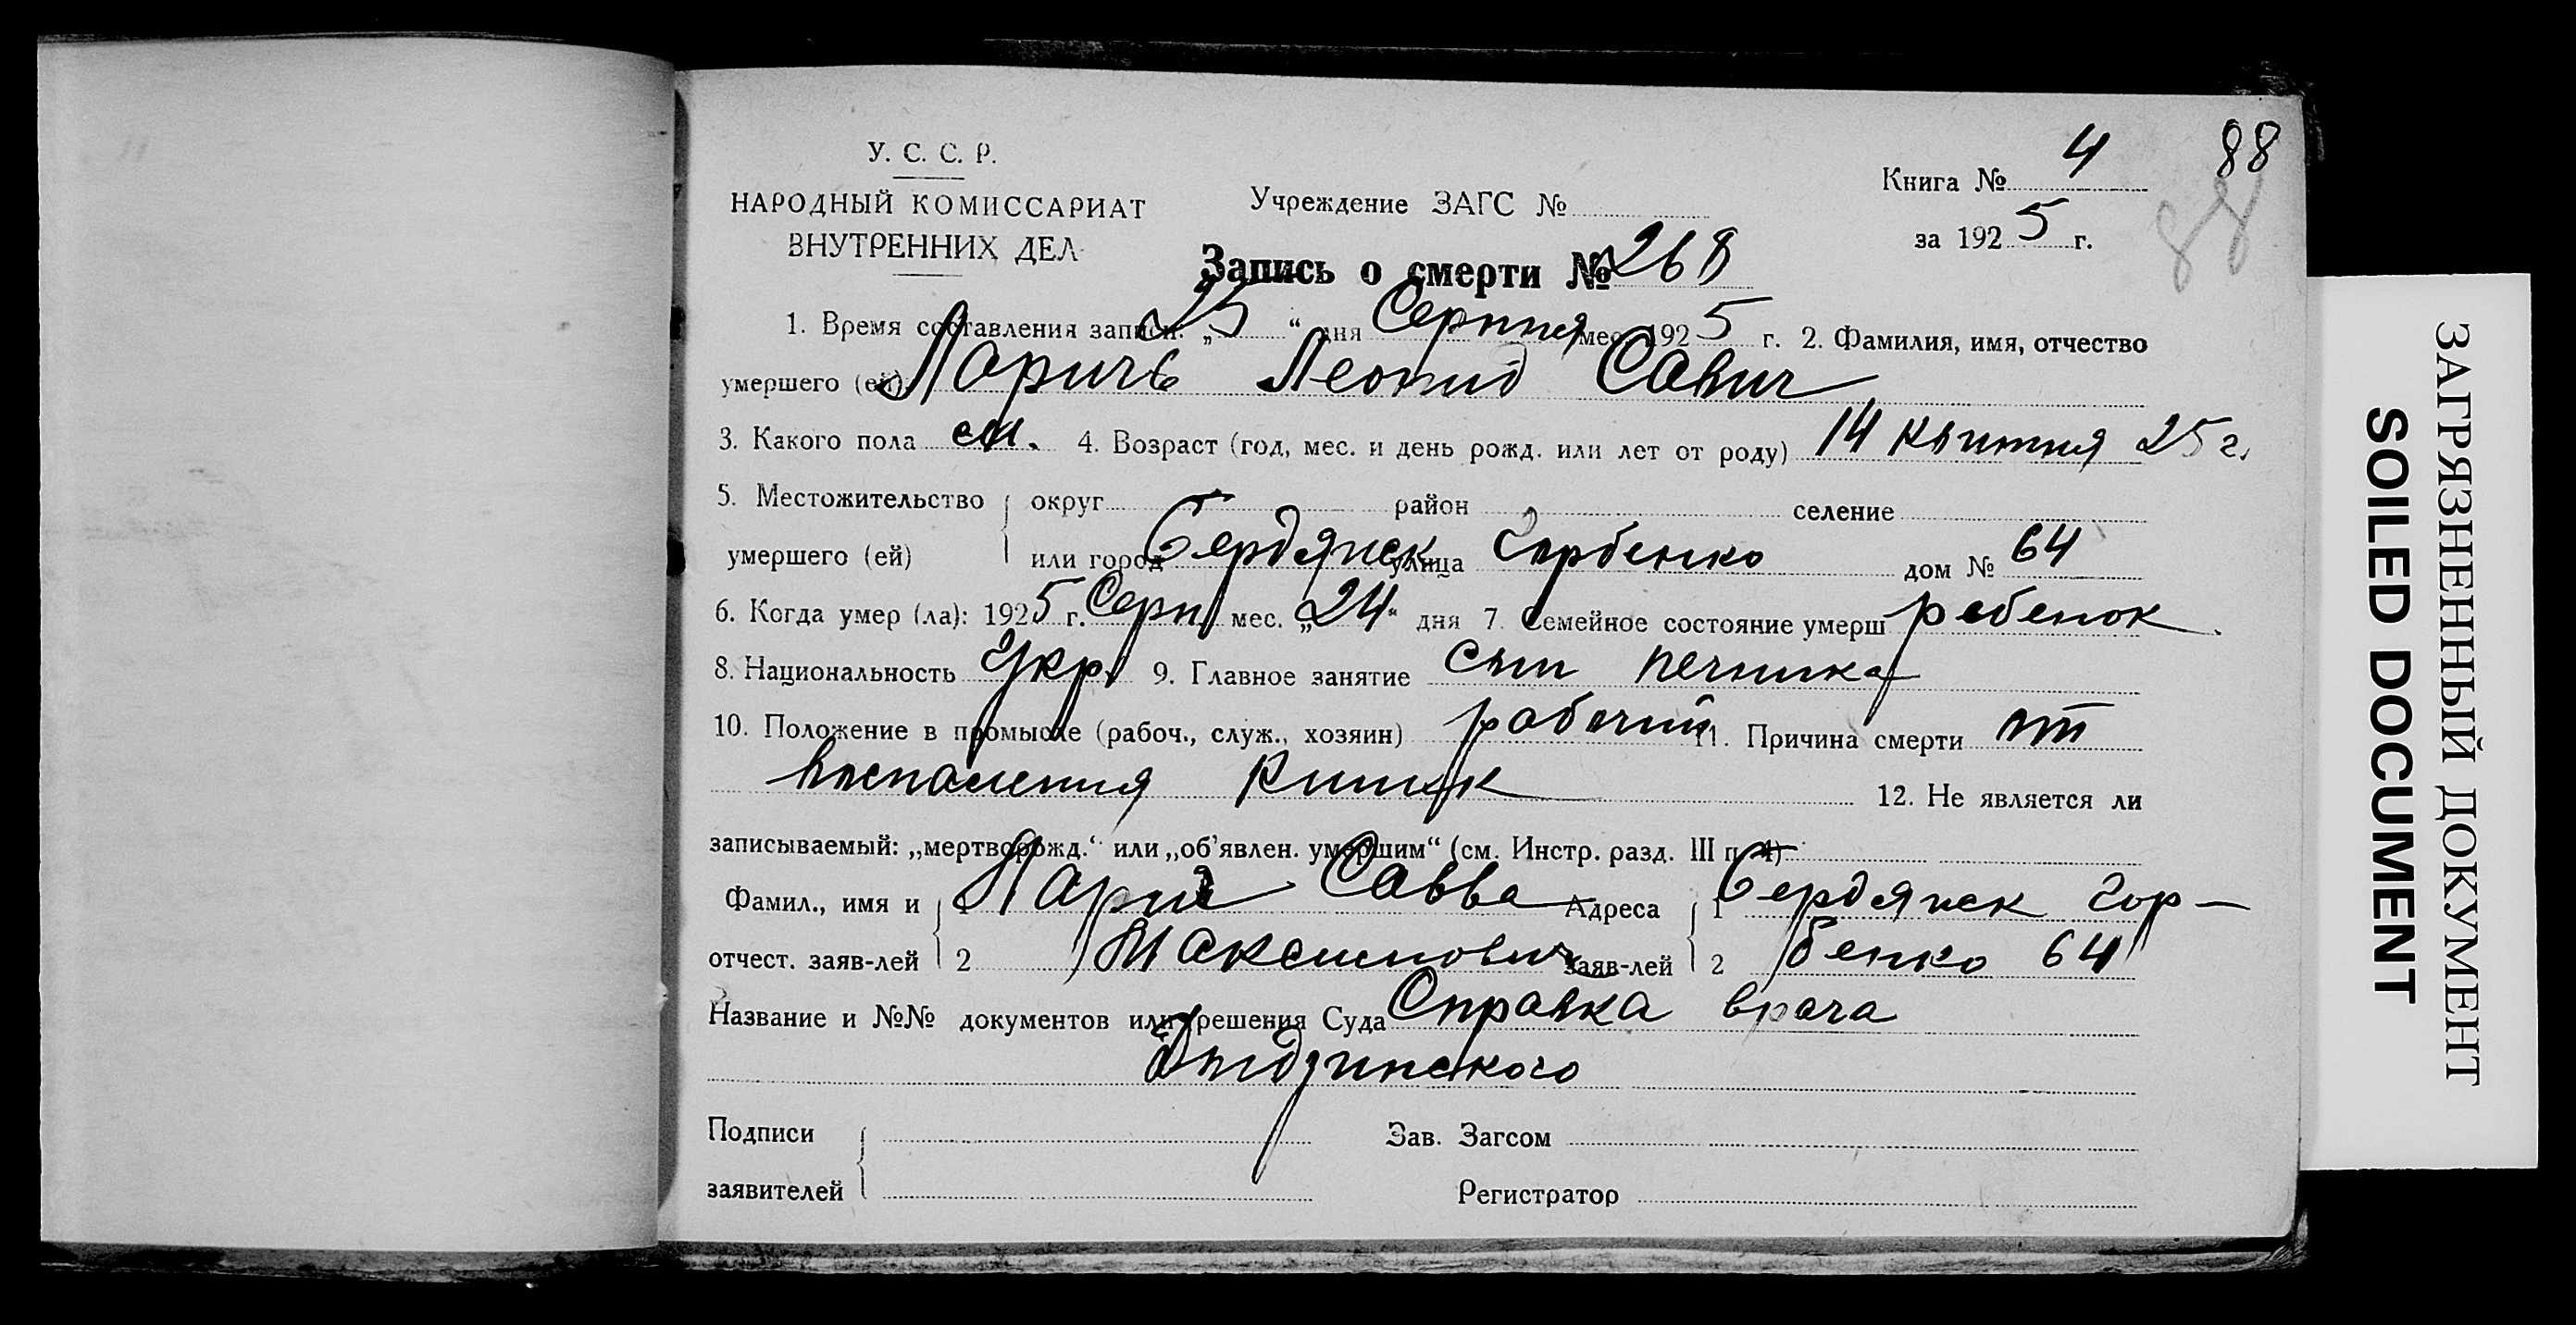 88
У. С. С. Р.
Книга № 4
88
НАРОДНЫЙ КОМИССАРИАТ
ВНУТРЕННИХ ДЕЛ
Учреждение ЗАГС №
за 1925 г.
Запись о смерти № 268
1. Время составления записи: „25“ дня Серпня мес. 1925 г. 2. Фамилия, имя, отчество
умершего (ей): Леонид Савич
3. Какого пола 4. Возраст (год, мес. и день рожд. или лет от роду) 14 квитня 25 г.
5. Местожительство округ район селение
умершего (ей) или город Бердянск улица Горбенко дом № 64
6. Когда умер (ла): 1925 г. Серп. мес. „24“ дня 7 Семейное состояние умерш ребенок
8. Национальность Укр. 9. Главное занятие сын печника
10. Положение в промысле (рабоч., служ., хозяин) рабочий 11. Причина смерти от
воспаления кишок 12. Не является ли
записываемый: „мертворожд.“ или „об'явлен. умершим“ (см. Инстр. разд. III п. 4)
Фамил., имя и 1 Савва Адреса 1 Бердянск Гор-
отчест. заяв-лей 2 Максимович заяв-лей 2 бенко 64
Название и №№ документов или решения Суда Справка врача
Подписи Зав. Загсом
заявителей Регистратор
ЗАГРЯЗНЕННЫЙ ДОКУМЕНТ
SOILED DOCUMENT